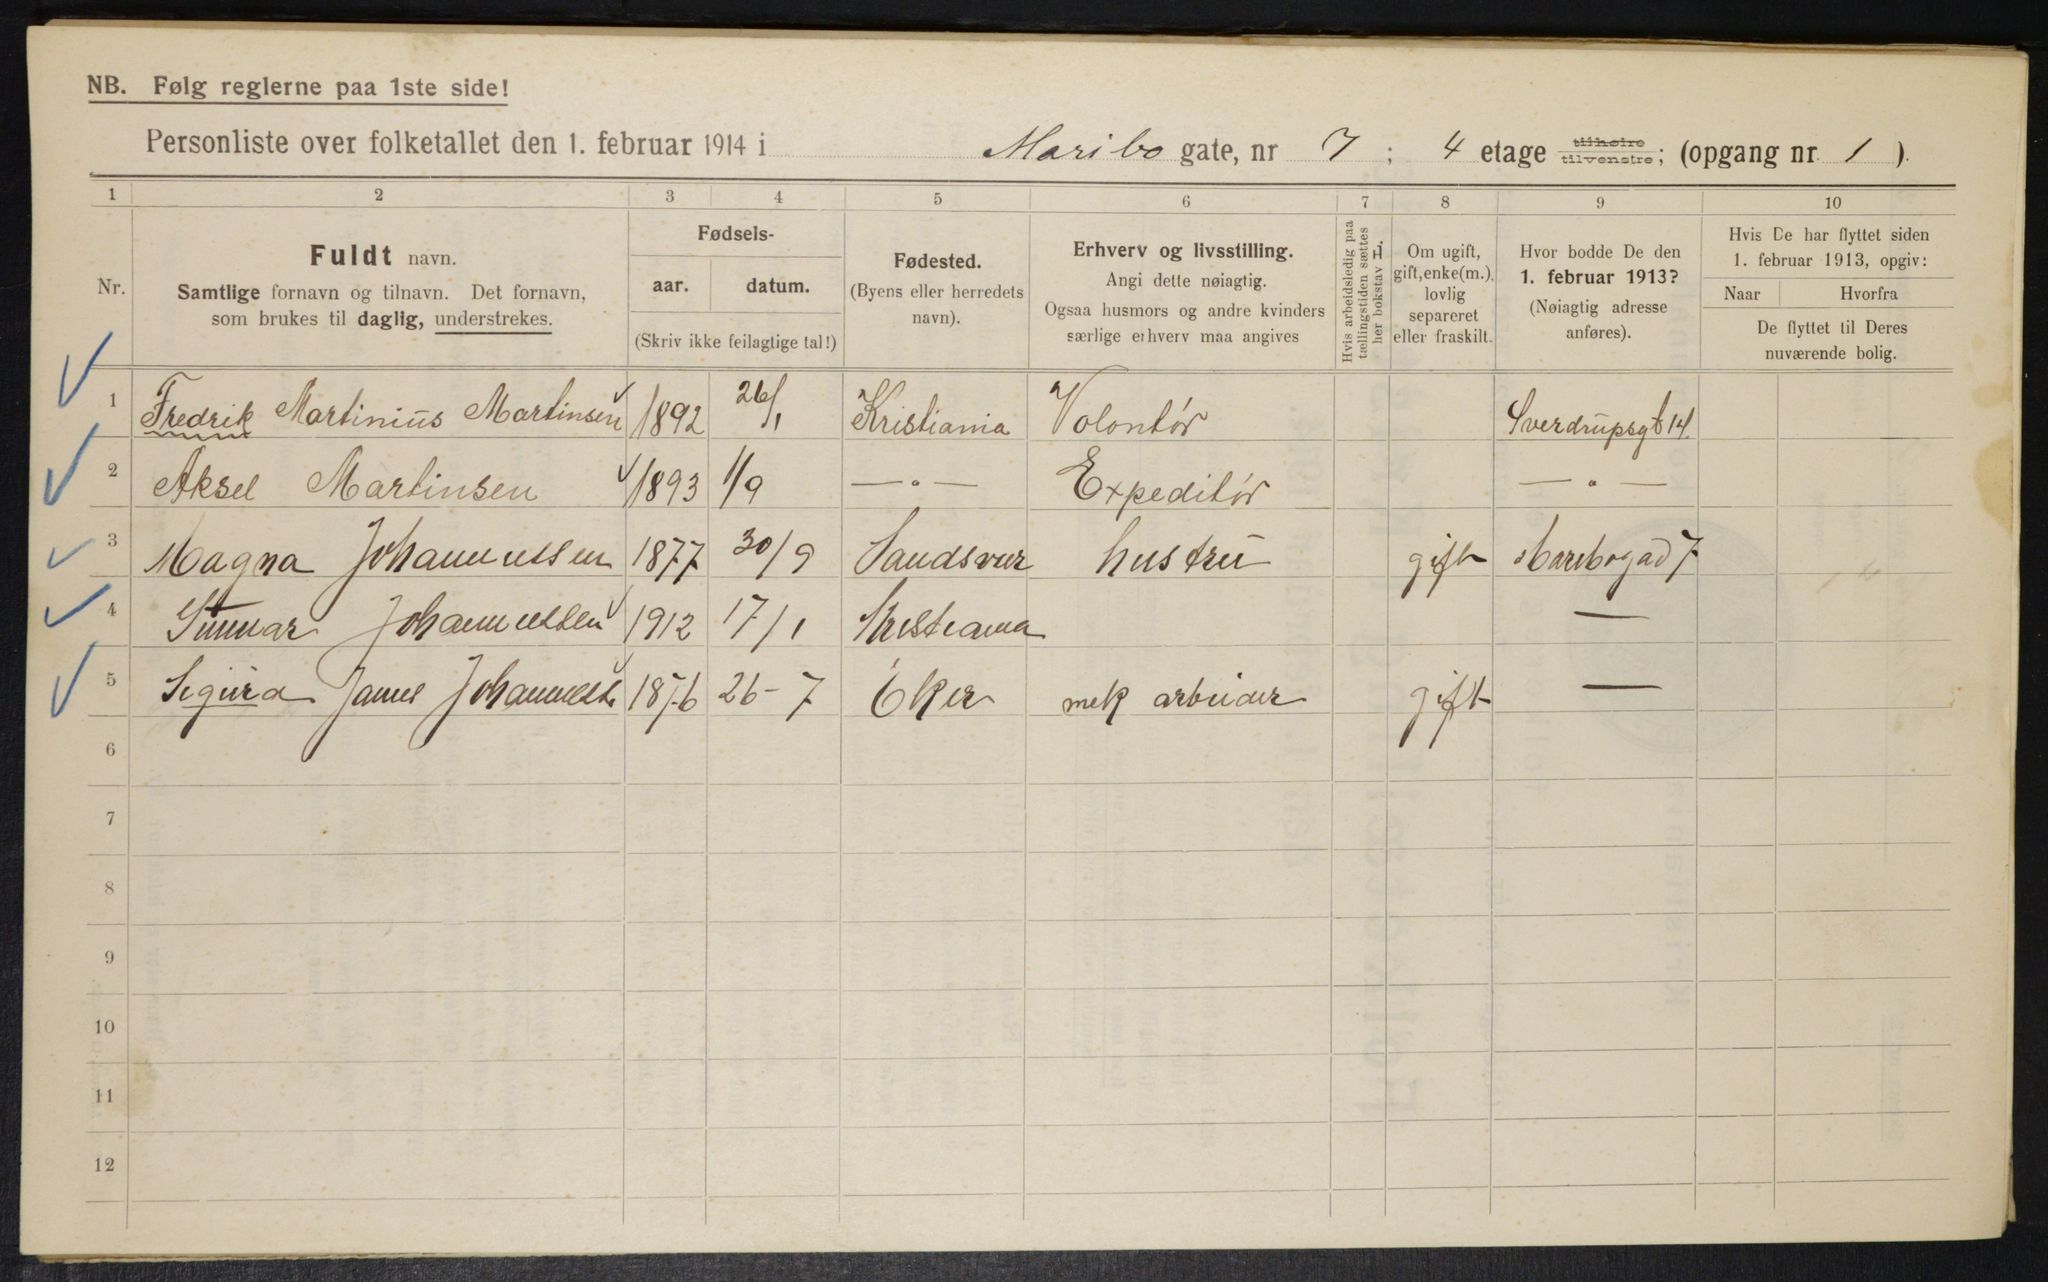 NB. Følg reglerne paa 1ste side!
Personliste over folketallet den 1. februar 1914 i Maribo gate, nr 7; 4 etage tilhøire tilvenstre; (opgang nr. 1).
1 2 3 4 5 6 7 8 9 10
Nr.
Fuldt navn.
Samtlige fornavn og tilnavn. Det fornavn,
som brukes til daglig, understrekes.
Fødsels-
aar. datum.
(Skriv ikke feilagtige tal!)
Fødested.
(Byens eller herredets
navn).
Erhverv og livsstilling.
Angi dette nøiagtig.
Ogsaa husmors og andre kvinders
særlige erhverv maa angives
Hvis arbeidsledig paa
tællingstiden sættes
her bokstav
Om ugift,
gift, enke(m.),
lovlig
separeret
eller fraskilt.
Hvor bodde De den
1. februar 1913?
(Nøiagtig adresse
anføres).
Hvis De har flyttet siden
1. februar 1913, opgiv:
Naar Hvorfra
De flyttet til Deres
nuværende bolig.
1 Fredrik Martinius Martinsen 1892 26/1 Kristiania Volontør Sverdrupsgt 14.
2 Aksel Martinsen 1893 1/9 — " — Expeditør — " —
3 Magna Johannessen 1877 30/9 Sandsver hustru gift Maribogad 7
4 Gunnar Johannessen 1912 17/1 Kristiania —
5 Sigurd James Johannesse 1876 26-7 Eker mek arbeider gift —
6
7
8
9
10
11
12